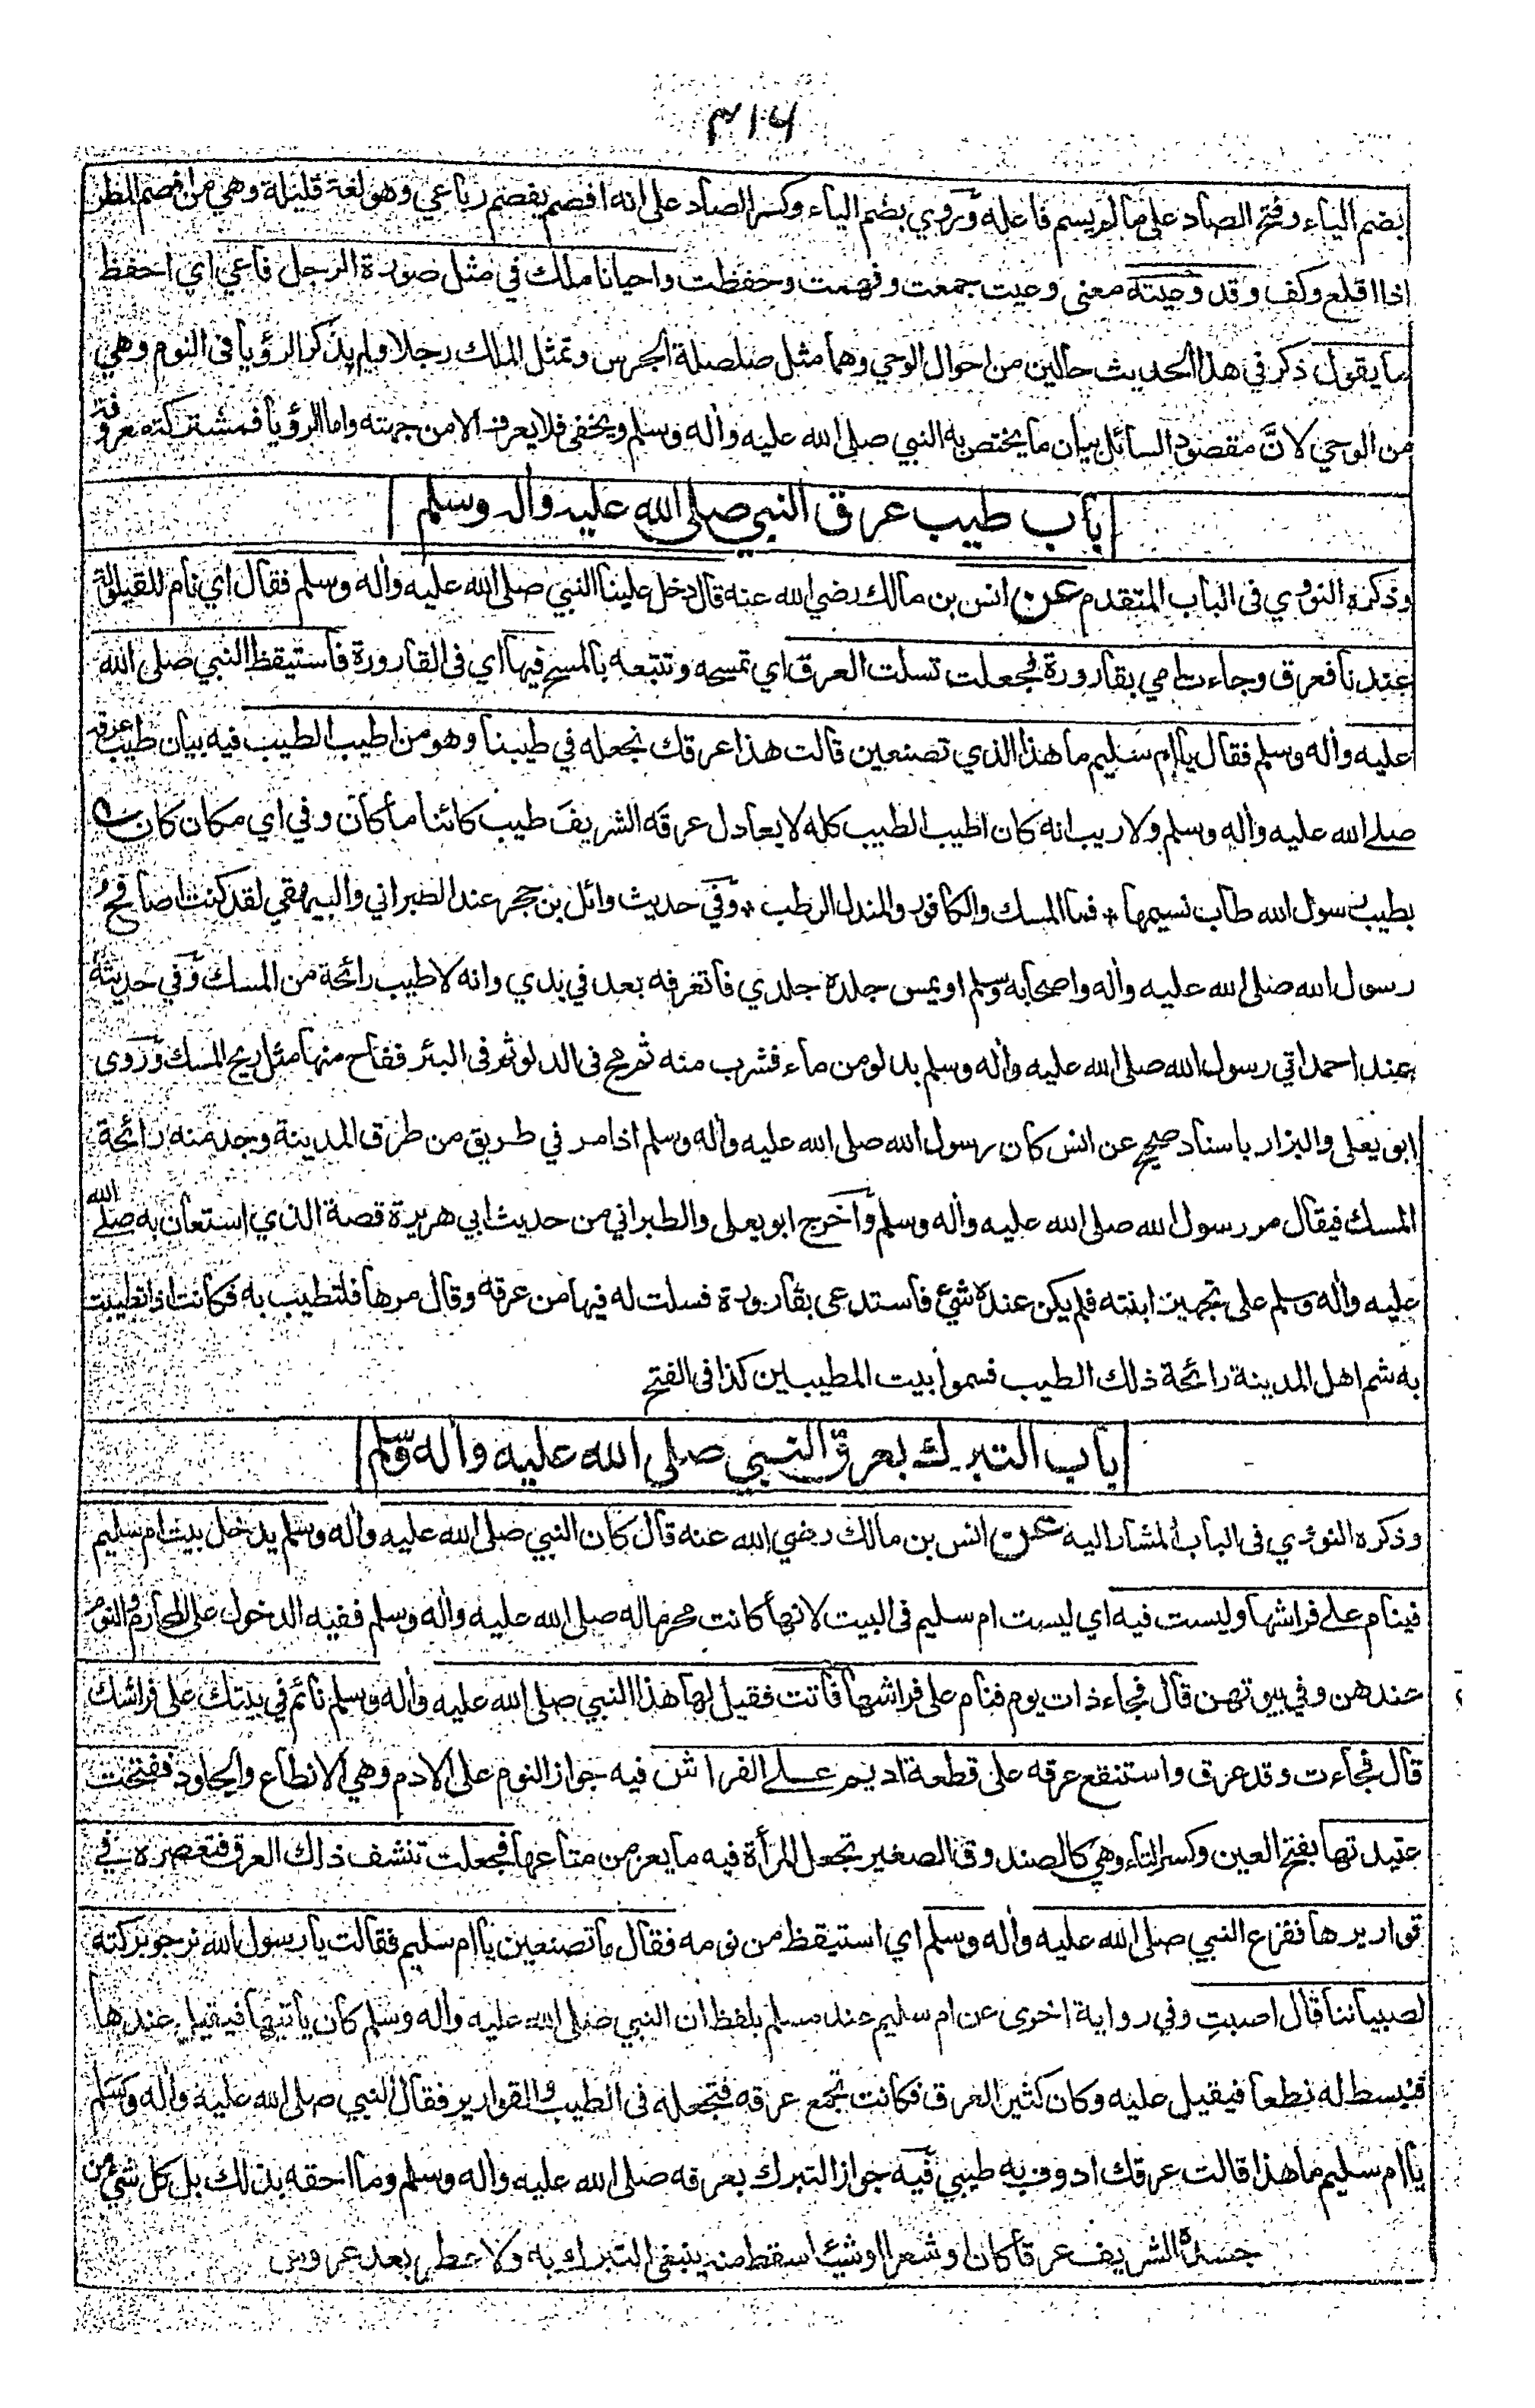 ٣١٤
بضم الياء وفتح الصاد على ما لم يسم فاعله وروي بضم الياء وكسر الصاد على انه افصم يفصم رباعي وهو لغة قليلة وهي من افصم المطر
اذا اقلع وكف وقد وعيته معنى وعيت جمعت وفهمت وحفظت واحيانا ملك في مثل صورة الرجل فاعي اي احفظ
ما يقول ذكر في هذا الحديث حالين من احوال الوحي وهما مثل صلصلة الجرس وتمثل الملك رجلا ولم يذكر الرؤيا فى النوم وهي
من الوحي لانَّ مقصود السائل بيان ما يختص به النبي صلى الله عليه واٰله وسلم ويخفى فلا يعرف الا من جهته واما الرؤيا فمشتركة معروفة
باب طيب عرق النبي صلى الله عليه واٰله وسلم
وذكره النووي فى الباب المتقدم عن انس بن مالك رضي الله عنه قال دخل علينا النبي صلى الله عليه واٰله وسلم فقال اي نام للقيلولة
عندنا فعرق وجاءت امي بقارورة فجعلت تسلت العرق اي تمسحه وتتبعه بالمسح فيها اي فى القارورة فاستيقظ النبي صلى الله
عليه واٰله وسلم فقال يا ام سليم ما هذا الذي تصنعين قالت هذا عرقك نجعله في طيبنا وهو من اطيب الطيب فيه بيان طيب عرقه
صلى الله عليه واٰله وسلم ولا ريب انه كان اطيب الطيب كله لا يعادل عرقه الشريف طيب كائنا ما كان وفي اي مكان كان
بطيب رسول الله طاب نسيمها * فما المسك والكافور والمندل الرطب * وفي حديث وائل بن حجر عند الطبراني والبيهقي لقد كنت اصافح
رسول الله صلى الله عليه واٰله واصحابه وسلم او يمس جلده جلدي فاتعرفه بعد في يدي وانه لاطيب رائحة من المسك وفي حديثه
عند احمد اتي رسول الله صلى الله عليه واٰله وسلم بدلو من ماء فشرب منه ثم مج فى الدلو ثم فى البئر ففاح منها مثل ريح المسك وروى
ابو يعلى والبزار باسناد صحيح عن انس كان رسول الله صلى الله عليه واٰله وسلم اذا مر في طريق من طرق المدينة وجد منه رائحة
المسك فيقال مر رسول الله صلى الله عليه واٰله وسلم واخرج ابو يعلى والطبراني من حديث ابي هريرة قصة الذي استعان به صلى الله
عليه واٰله وسلم على تجهيز ابنته فلم يكن عنده شئ فاستدعى بقارورة فسلت له فيها من عرقه وقال مرها فلتطيب به فكانت اذا تطيبت
به شم اهل المدينة رائحة ذلك الطيب فسموا بيت المطيبين كذا فى الفتح
باب التبرك بعرق النبي صلى الله عليه واٰله وسلم
وذكره النووي فى الباب المشار اليه عن انس بن مالك رضي الله عنه قال كان النبي صلى الله عليه واٰله وسلم يدخل بيت ام سليم
فينام على فراشها وليست فيه اي ليست ام سليم فى البيت لانها كانت محرما له صلى الله عليه واٰله وسلم ففيه الدخول على المحارم والنوم
عندهن وفي بيوتهن قال فجاء ذات يوم فنام على فراشها فاتت فقيل لها هذا النبي صلى الله عليه واٰله وسلم نائم في بيتك على فراشك
قال فجاءت وقد عرق واستنقع عرقه على قطعة اديم على الفراش فيه جواز النوم على الادم وهي الانطاع والجلود ففتحت
عتيدتها بفتح العين وكسر التاء وهي كالصندوق الصغير تجعل المرأة فيه ما يعز من متاعها فجعلت تنشف ذلك العرق فتعصره في
قواريرها ففزع النبي صلى الله عليه واٰله وسلم اي استيقظ من نومه فقال ما تصنعين يا ام سليم فقالت يا رسول الله نرجو بركته
لصبياننا قال اصبتِ وفي رواية اخرى عن ام سليم عند مسلم بلفظ ان النبي صلى الله عليه واٰله وسلم كان ياتيها فيقيل عندها
فتبسط له نطعا فيقيل عليه وكان كثير العرق فكانت تجمع عرقه فتجعله فى الطيب والقوارير فقال النبي صلى الله عليه واٰله وسلم
يا ام سليم ما هذا قالت عرقك ادوف به طيبي فيه جواز التبرك بعرقه صلى الله عليه واٰله وسلم وما احقه بذلك بل كل شئ من
جسده الشريف عرقا كان او شعرا او شيئا سقط منه ينبغي التبرك به ولا عطر بعد عروس